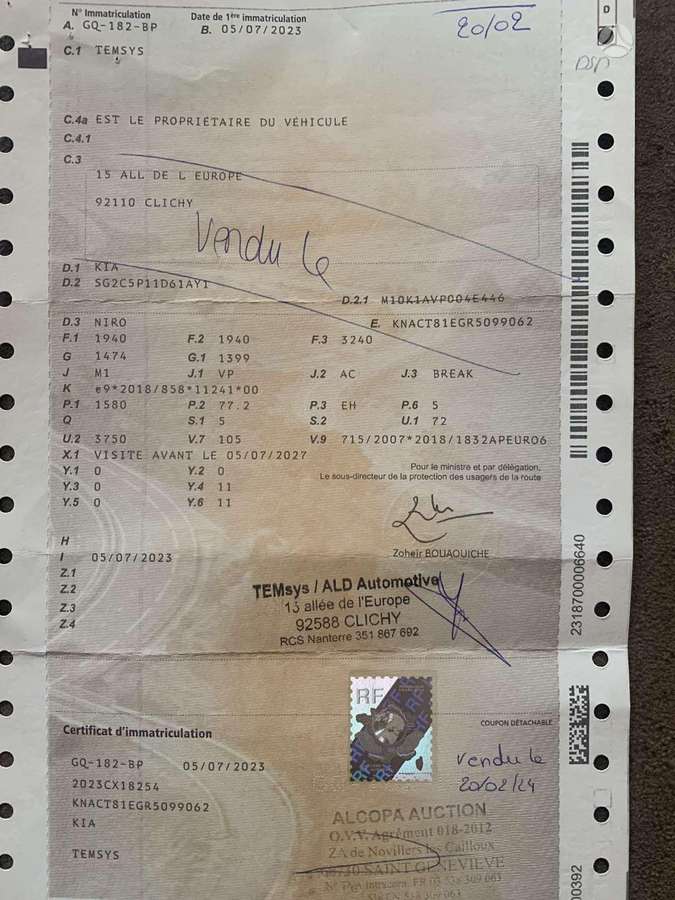 N° Immatriculation Date de 1ère immatriculation 20/02 D
A. GQ-182-BP B. 05/07/2023
C.1 TEMSYS
C.4a EST LE PROPRIÉTAIRE DU VÉHICULE
C.4.1
C.3
15 ALL DE L EUROPE
92110 CLICHY
Vendu le
D.1 KIA
D.2 SG2C5P11D61AY1
D.2.1 M10K1AVP004E446
D.3 NIRO E. KNACT81EGR5099062
F.1 1940 F.2 1940 F.3 3240
G 1474 G.1 1399
J M1 J.1 VP J.2 AC J.3 BREAK
K e9*2018/858*11241*00
P.1 1580 P.2 77.2 P.3 EH P.6 5
Q S.1 5 S.2 U.1 72
U.2 3750 V.7 105 V.9 715/2007*2018/1832APEURO6
X.1 VISITE AVANT LE 05/07/2027
Y.1 0 Y.2 0
Y.3 0 Y.4 11
Y.5 0 Y.6 11
Pour le ministre et par délégation,
Le sous-directeur de la protection des usagers de la route
Zoheir BOUAOUICHE
H
I 05/07/2023
Z.1
Z.2
Z.3
Z.4
TEMsys / ALD Automotive
15 allée de l'Europe
92588 CLICHY
RCS Nanterre 351 867 692
2318700006640
RF
COUPON DÉTACHABLE
Certificat d'immatriculation
GQ-182-BP 05/07/2023
2023CX18254
KNACT81EGR5099062
KIA
TEMSYS
vendu le
20/02/24
ALCOPA AUCTION
O.V.V. Agrément 018-2012
ZA de Novillers les Cailloux
60730 SAINT GENEVIEVE
00392